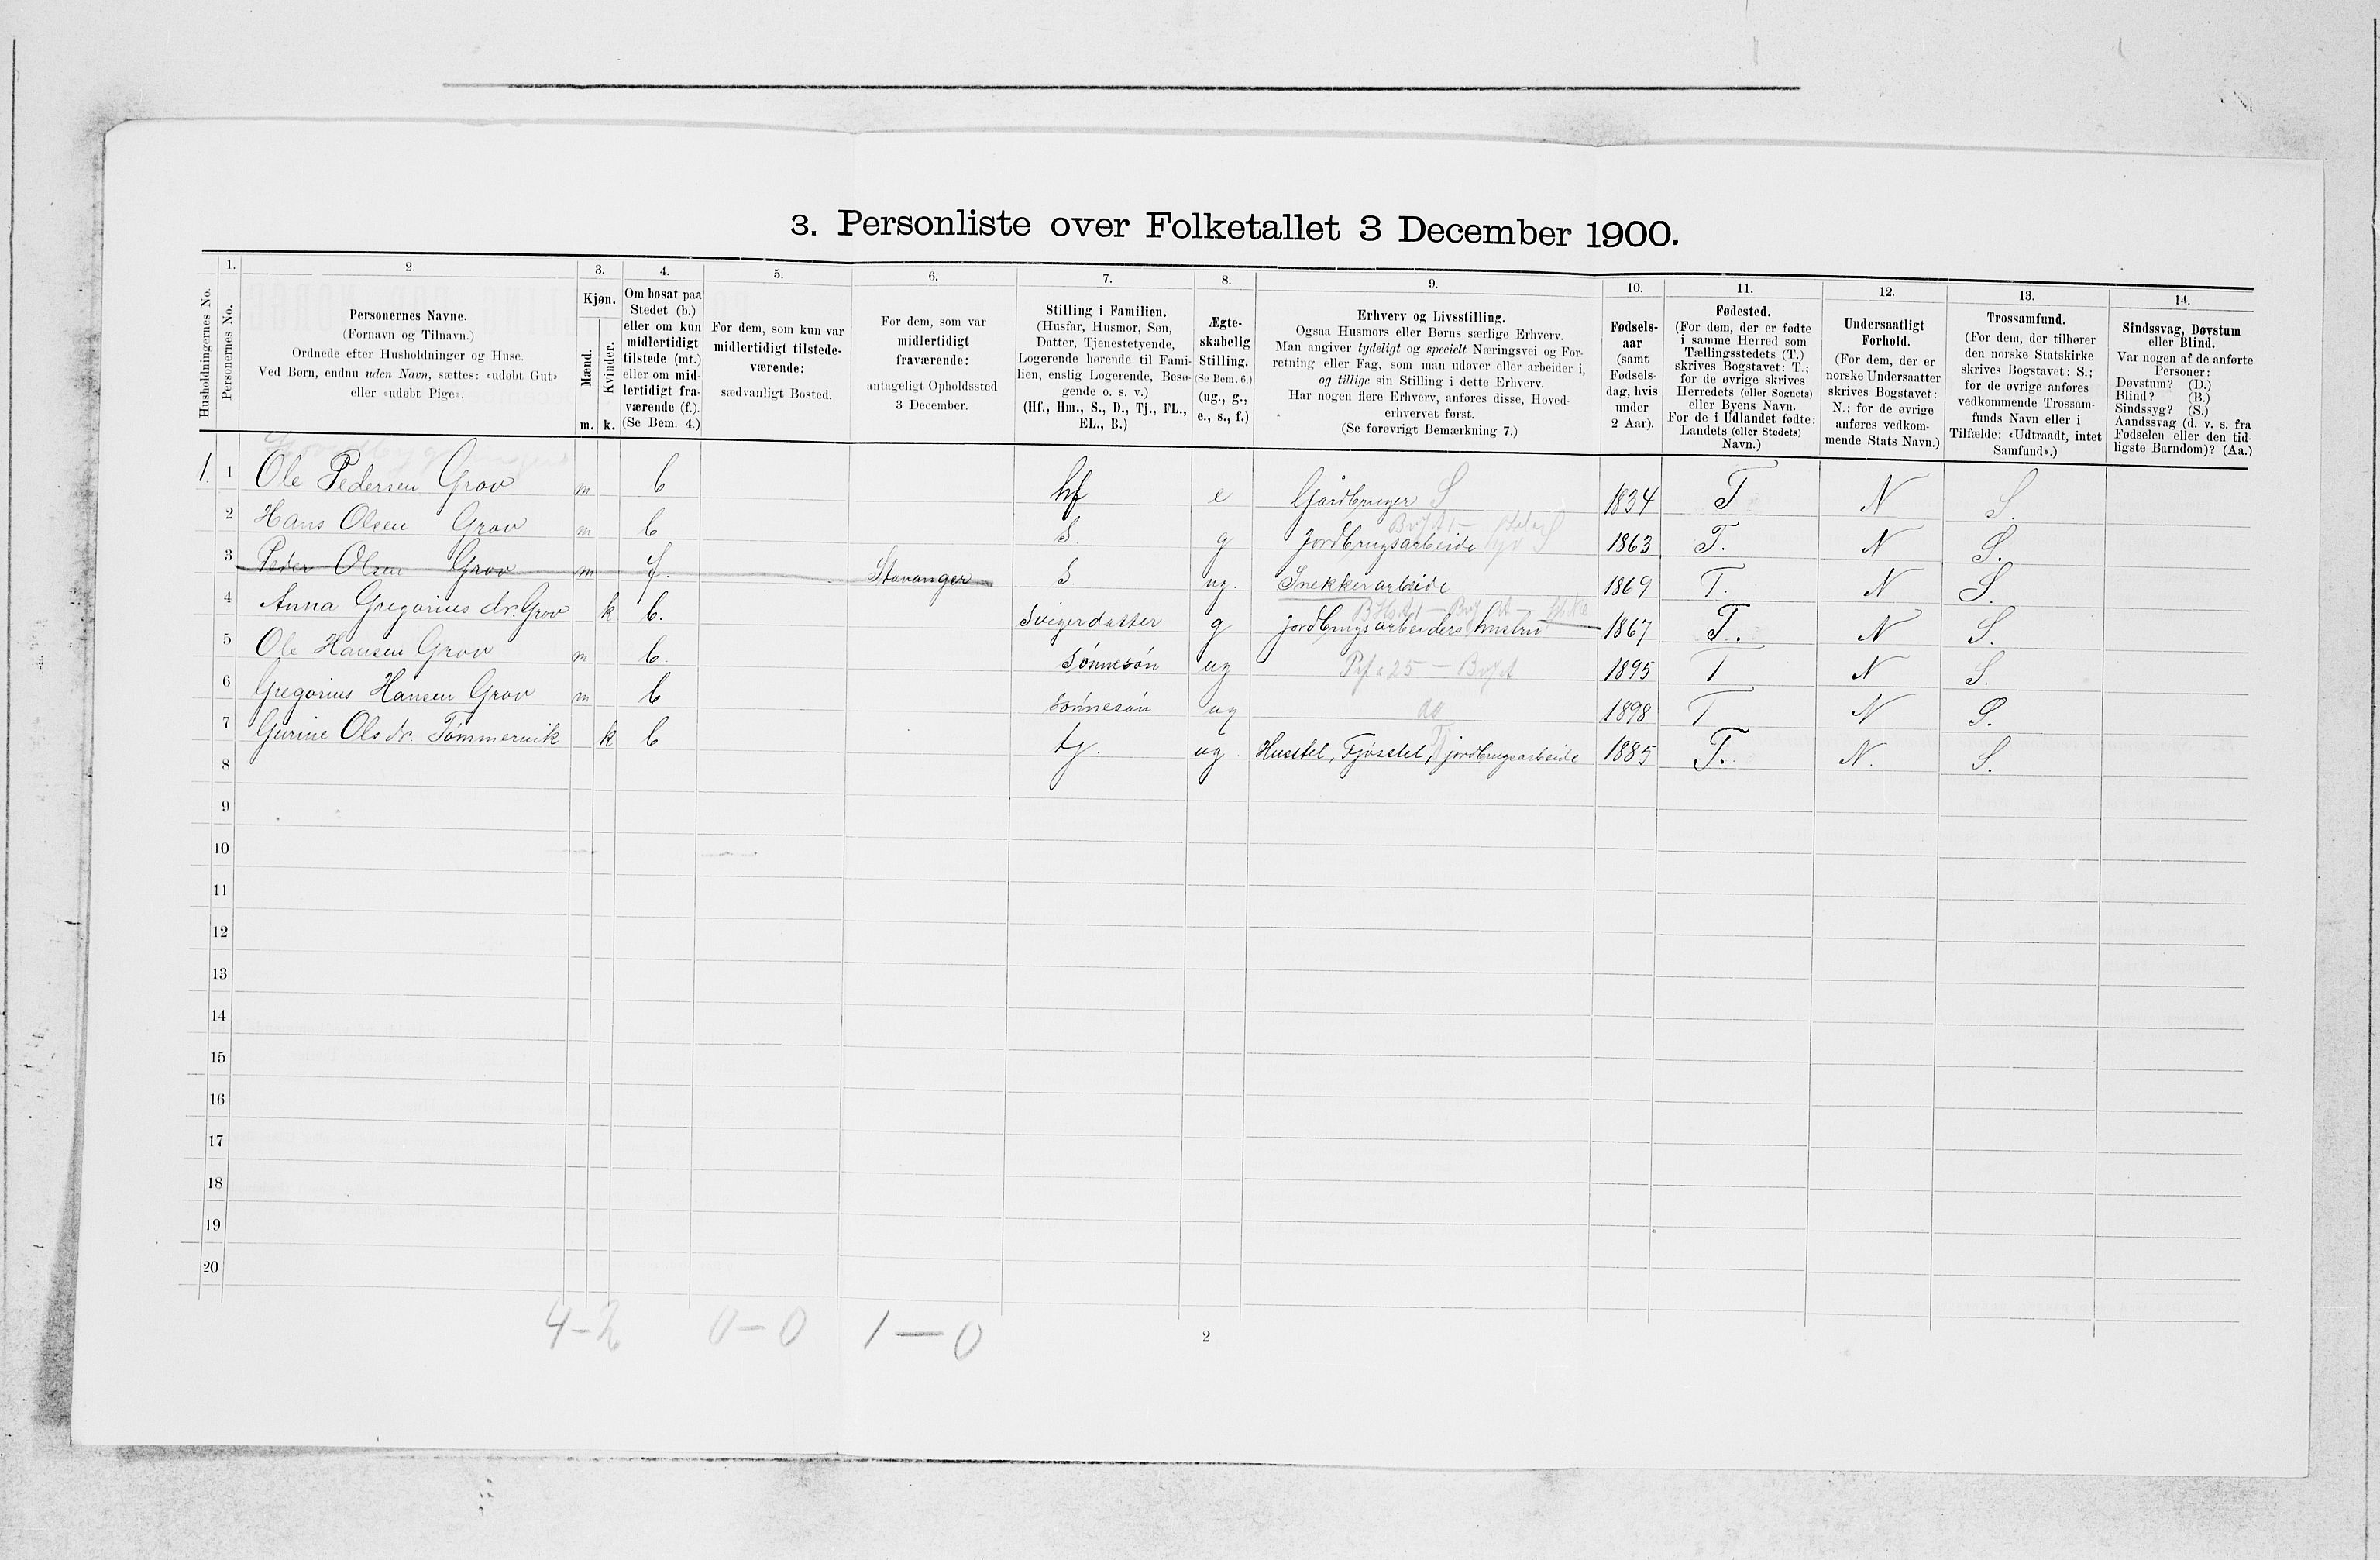 3. Personliste over Folketallet 3 December 1900.
Husholdningernes No.
1.
Personernes No.
2.
Personernes Navne.
(Fornavn og Tilnavn.)
Ordnede efter Husholdninger og Huse.
Ved Børn, endnu uden Navn, sættes: «udøbt Gut»
eller «udøbt Pige».
3.
Kjøn.
Mænd.
Kvinder.
m. k.
4.
Om bosat paa
Stedet (b.)
eller om kun
midlertidigt
tilstede (mt.)
eller om mid-
lertidigt fra-
værende (f.).
(Se Bem. 4.)
5.
For dem, som kun var
midlertidigt tilstede-
værende:
sædvanligt Bosted.
6.
For dem, som var
midlertidigt
fraværende:
antageligt Opholdssted
3 December.
7.
Stilling i Familien.
(Husfar, Husmor, Søn,
Datter, Tjenestetyende,
Logerende hørende til Fami-
lien, enslig Logerende, Besø-
gende o. s. v.)
(Hf., Hm., S., D., Tj., FL.,
EL., B.)
8.
Ægte-
skabelig
Stilling.
(Se Bem. 6.)
(ug., g.,
e., s., f.)
9.
Erhverv og Livsstilling.
Ogsaa Husmors eller Børns særlige Erhverv.
Man angiver tydeligt og specielt Næringsvei og For-
retning eller Fag, som man udøver eller arbeider i,
og tillige sin Stilling i dette Erhverv.
Har nogen flere Erhverv, anføres disse, Hoved-
erhvervet først.
(Se forøvrigt Bemærkning 7.)
10.
Fødsels-
aar
(samt
Fødsels-
dag, hvis
under
2 Aar).
11.
Fødested.
(For dem, der er fødte
i samme Herred som
Tællingsstedets (T.)
skrives Bogstavet: T.;
for de øvrige skrives
Herredets (eller Sognets)
eller Byens Navn.
For de i Udlandet fødte:
Landets (eller Stedets)
Navn.)
12.
Undersaatligt
Forhold.
(For dem, der er
norske Undersaatter
skrives Bogstavet:
N.; for de øvrige
anføres vedkom-
mende Stats Navn.)
13.
Trossamfund.
(For dem, der tilhører
den norske Statskirke
skrives Bogstavet: S.;
for de øvrige anføres
vedkommende Trossam-
funds Navn eller i
Tilfælde: «Udtraadt, intet
Samfund».)
14.
Sindssvag, Døvstum
eller Blind.
Var nogen af de anførte
Personer:
Døvstum? (D.)
Blind? (B.)
Sindssyg? (S.)
Aandssvag (d. v. s. fra
Fødselen eller den tid-
ligste Barndom)? (Aa.)
1 1 Ole Pedersen Grov m b hf e Gårdbruger S 1834 T N S.
2 Hans Olsen Grov m b S. g jordbrugsarbeide 1863 T. N S.
3 Peder Olsen Grov m f. Stavanger S ug. Snekkerarbeide 1869 T. N S.
4 Anna Gregorius dr. Grov k b. Svigerdatter g jordbrugsarbeiders hustru 1867 T. N S.
5 Ole Hansen Grov m b. Sønnesøn ug 1895 T N S.
6 Gregorius Hansen Grov m b Sønnesøn ug 1898 T N S.
7 Gurine Ols dr. Tømmervik k b tj. ug. Husstel, Fjøsstel, jordbrugsarbeide 1885 T. N. S.
8
9
10
11
12
13
14
15
16
17
18
19
20
4-2 0-0 1-0
2